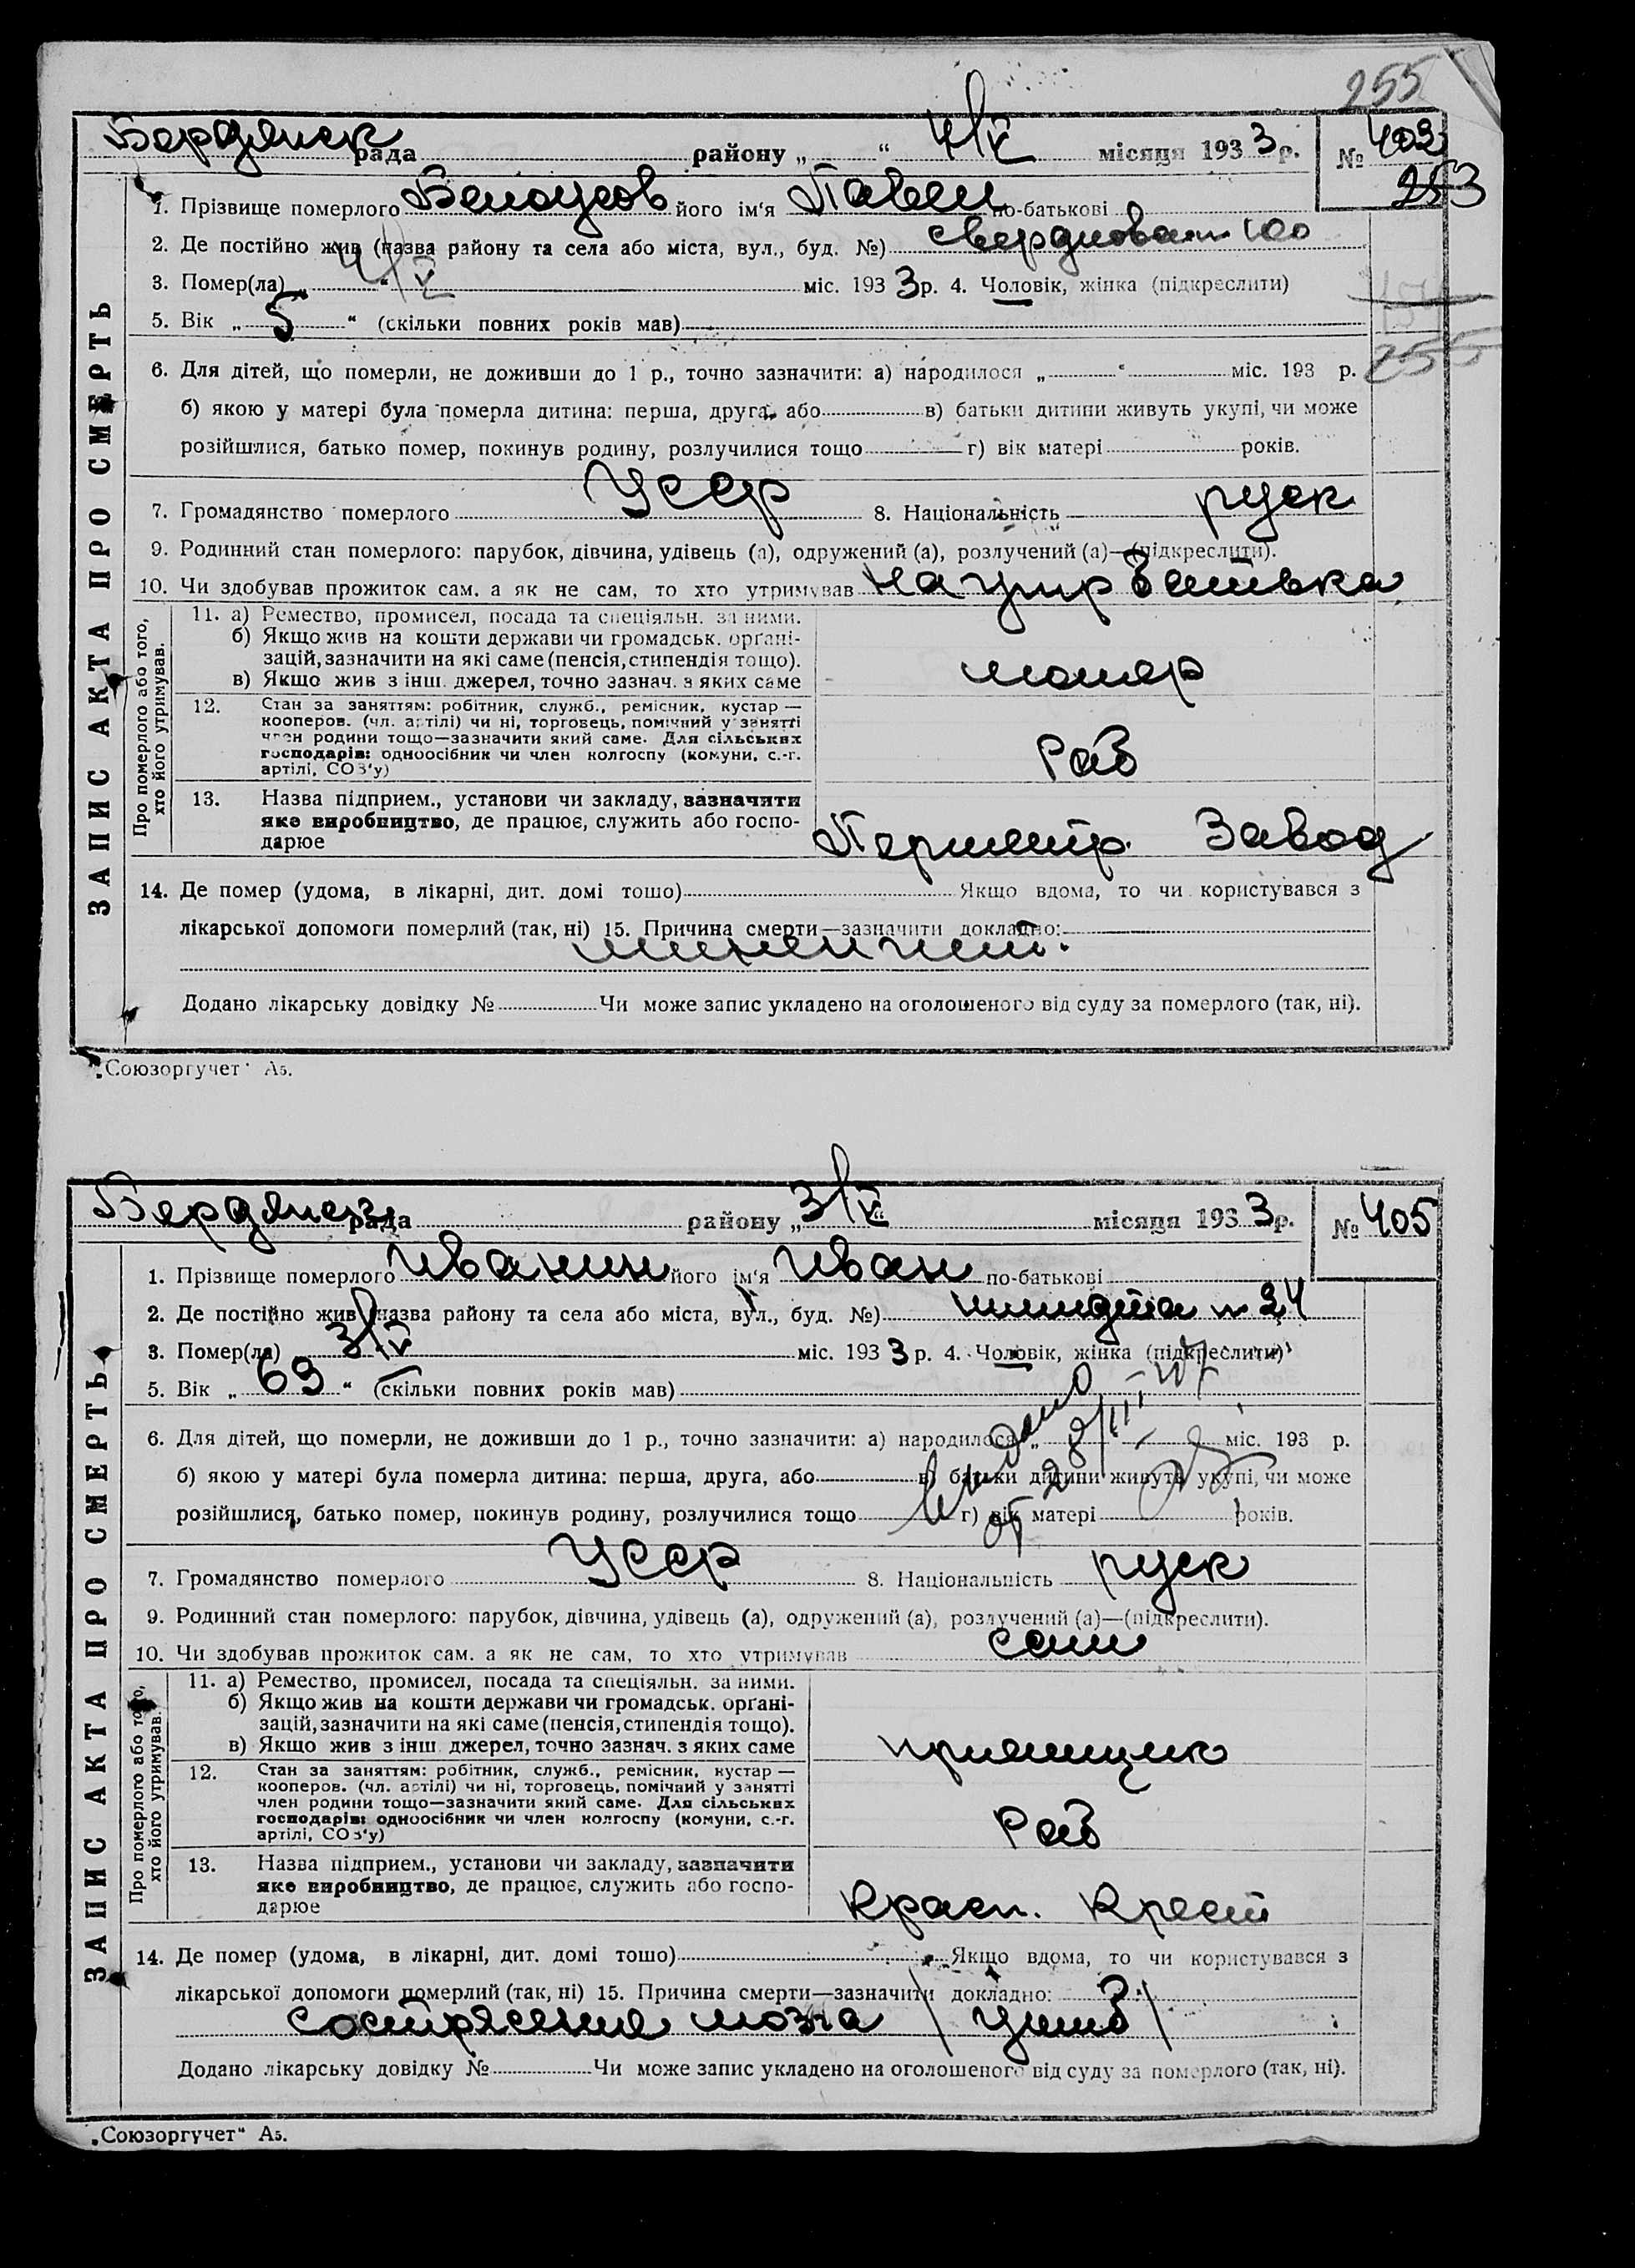 255
Бердянск рада району „ “ 4/V місяця 1933 р. № 403
253
1. Прізвище померлого Белоусов його ім‘я Павел по-батькові
2. Де постійно жив (назва району та села або міста, вул., буд. №) Свердлова 100
3. Помер(ла) „ 4/V “ міс. 1933 р. 4. Чоловік, жінка (підкреслити)
5. Вік „ 5 “ (скільки повних років мав)
255
6. Для дітей, що померли, не доживши до 1 р., точно зазначити: а) народилося „ “ міс. 193 р.
б) якою у матері була померла дитина: перша, друга, або в) батьки дитини живуть укупі, чи може
розійшлися, батько помер, покинув родину, розлучилися тощо г) вік матері років.
7. Громадянство померлого Усср 8. Національність руск
9. Родинний стан померлого: парубок, дівчина, удівець (а), одружений (а), розлучений (а)—(підкреслити).
10. Чи здобував прожиток сам. а як не сам, то хто утримував на ижр батька
Про померлого або того, хто його утримував.
11. а) Ремество, промисел, посада та спеціяльн. за ними.
б) Якщо жив на кошти держави чи громадськ. орґані-
зацій, зазначити на які саме (пенсія, стипендія тощо).
в) Якщо жив з інш. джерел, точно зазнач. з яких саме
маляр
12. Стан за заняттям: робітник, служб., ремісник, кустар —
кооперов. (чл. артілі) чи ні, торговець, помічний у занятті
член родини тощо—зазначити який саме. Для сільських
господарів: одноосібник чи член колгоспу (комуни, с.-г.
артілі, СОЗ‘у)
Раб
13. Назва підприєм., установи чи закладу, зазначити
яке виробництво, де працює, служить або госпо-
дарює
Завод
14. Де помер (удома, в лікарні, дит. домі тощо) Якщо вдома, то чи користувався з
лікарської допомоги померлий (так, ні) 15. Причина смерти—зазначити докладно:
менингит.
Додано лікарську довідку № Чи може запис укладено на оголошеного від суду за померлого (так, ні).
ЗАПИС АКТА ПРО СМЕРТЬ
„Союзоргучет“ А5.
Бердянск рада району „ 3/V “ місяця 1933 р. № 405
1. Прізвище померлого Иванин його ім‘я Иван по-батькові
2. Де постійно жив (назва району та села або міста, вул., буд. №) шмидта № 24
3. Помер(ла) 3/V міс. 1933 р. 4. Чоловік, жінка (підкреслити)
5. Вік „ 69 “ (скільки повних років мав)
6. Для дітей, що померли, не доживши до 1 р., точно зазначити: а) народилося „ міс. 193 р.
б) якою у матері була померла дитина: перша, друга, або в) батьки дитини живуть укупі, чи може
розійшлися, батько помер, покинув родину, розлучилися тощо г) вік матері років.
7. Громадянство померлого Усср 8. Національність руск
9. Родинний стан померлого: парубок, дівчина, удівець (а), одружений (а), розлучений (а)—(підкреслити).
10. Чи здобував прожиток сам. а як не сам, то хто утримував сам
Про померлого або того, хто його утримував.
11. а) Ремество, промисел, посада та спеціяльн. за ними.
б) Якщо жив на кошти держави чи громадськ. орґані-
зацій, зазначити на які саме (пенсія, стипендія тощо).
в) Якщо жив з інш. джерел, точно зазнач. з яких саме
приемщик
12. Стан за заняттям: робітник, служб., ремісник, кустар —
кооперов. (чл. артілі) чи ні, торговець, помічний у занятті
член родини тощо—зазначити який саме. Для сільських
господарів: одноосібник чи член колгоспу (комуни, с.-г.
артілі, СОЗ‘у)
Раб
13. Назва підприєм., установи чи закладу, зазначити
яке виробництво, де працює, служить або госпо-
дарює
Красн. Крест
14. Де помер (удома, в лікарні, дит. домі тощо) Якщо вдома, то чи користувався з
лікарської допомоги померлий (так, ні) 15. Причина смерти—зазначити докладно:
Сострясение мозга /ушиб/
Додано лікарську довідку № Чи може запис укладено на оголошеного від суду за померлого (так, ні).
ЗАПИС АКТА ПРО СМЕРТЬ
„Союзоргучет“ А5.